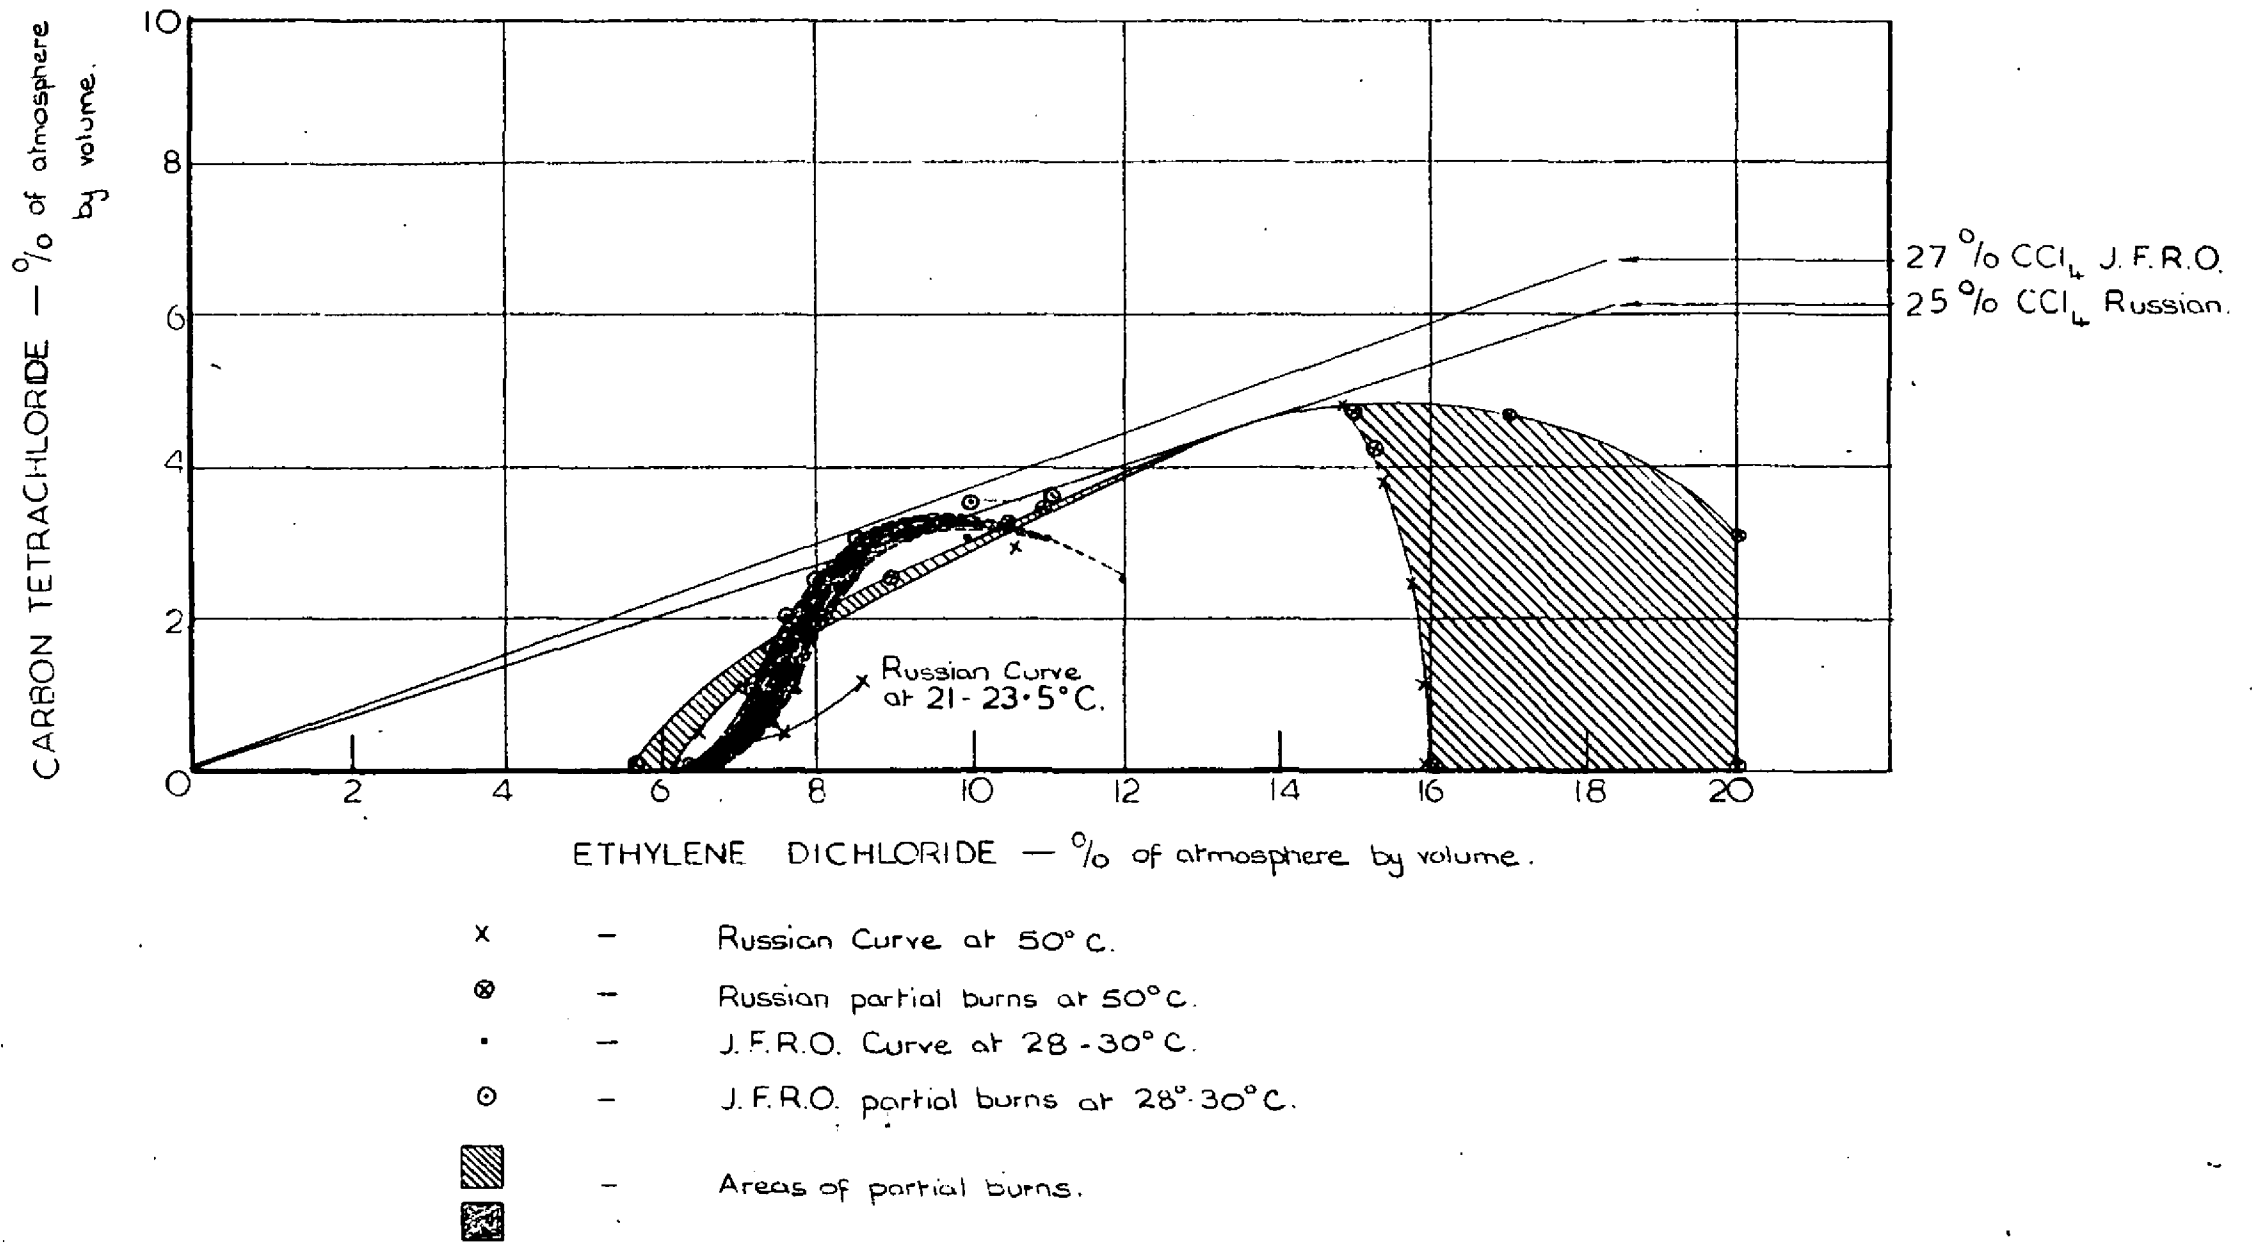 CARBON TETRACHLORIDE — % of atmosphere
by volume.
10
8
6
4
2
0
2
4
6
8
10
12
14
16
18
20
27 % CCl4 J.F.R.O.
25 % CCl4 Russian.
Russian Curve
at 21-23·5°C.
ETHYLENE DICHLORIDE — % of atmosphere by volume.
x – Russian Curve at 50°C.
⊗ – Russian partial burns at 50°C.
· – J.F.R.O. Curve at 28-30°C.
⊙ – J.F.R.O. partial burns at 28°-30°C.
– Areas of partial burns.